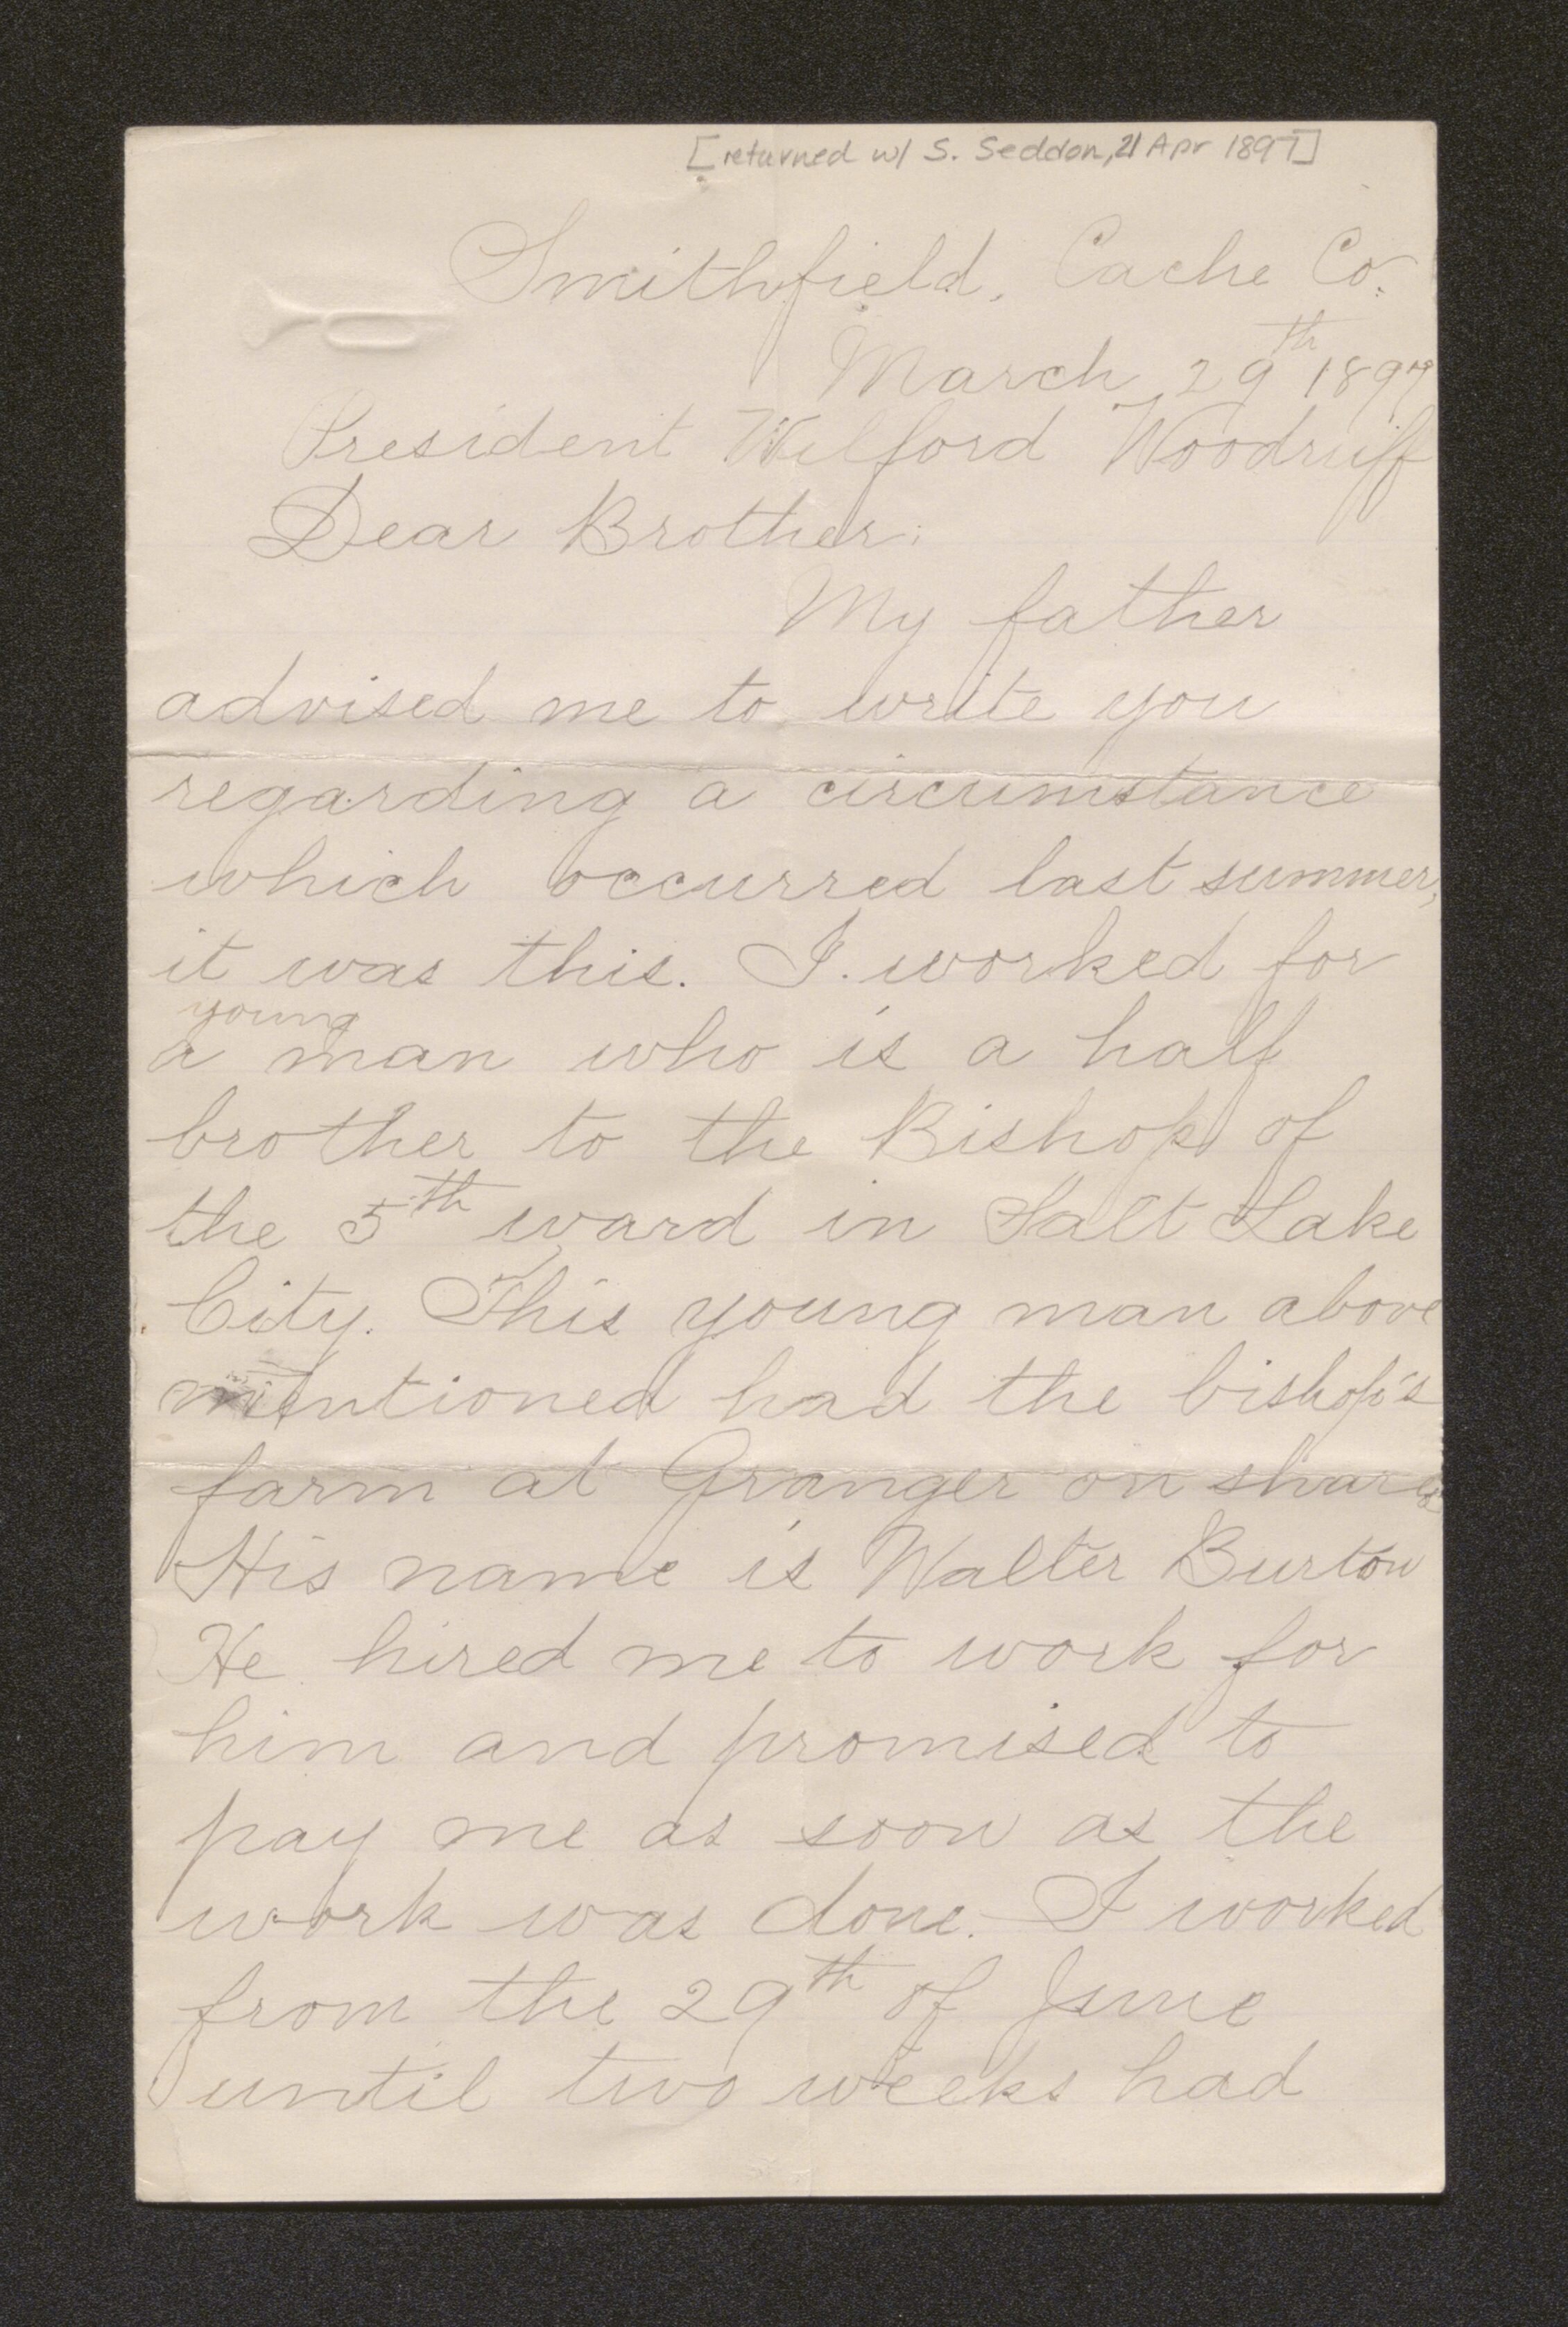 [returned w/ S. Seddon, 21 Apr 1897]
Smithfield, Cache Co.
March 29th 1897
President Wilford Woodruff
Dear Brother:
My father
advised me to write you
regarding a circumstance
which occurred last summer,
it was this. I worked for
young
a man who is a half
brother to the Bishop of
the 5th ward in Salt Lake
City. This young man above
mentioned had the bishop's
farm at Granger on shares
His name is Walter Burton
He hired me to work for
him and promised to
pay me as soon as the
work was done. I worked
from the 29th of June
until two weeks had